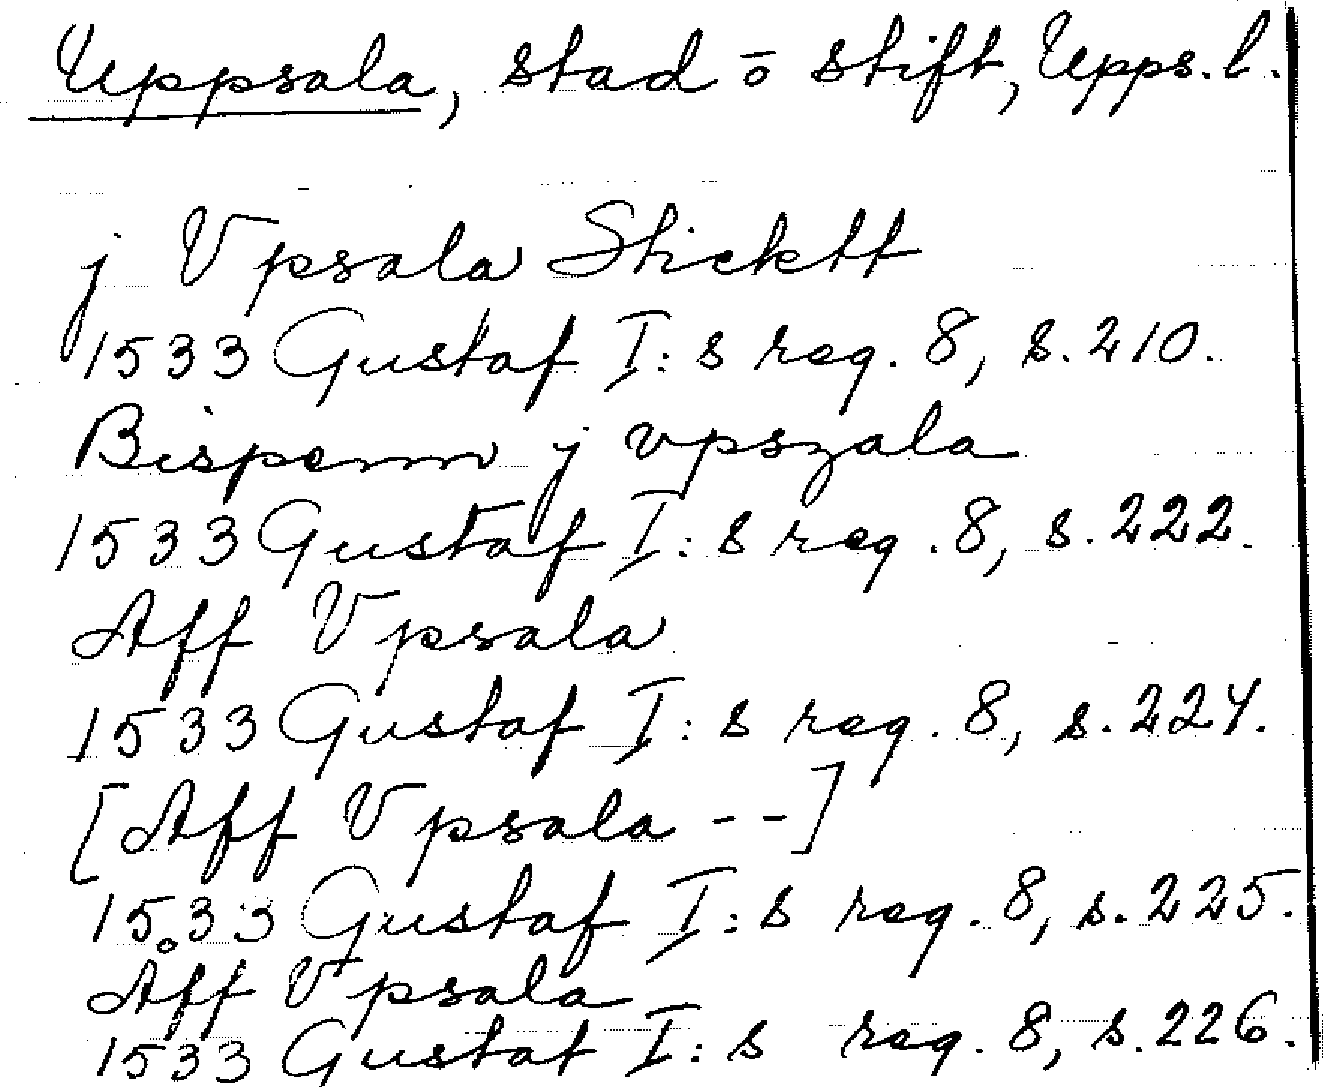 Uppsala, stad o stift, Upps. l.
j Vpsala Stícktt
1533 Gustaf I:s reg. 8, s. 210.
Bispenn j vpszala
1533 Gustaf I:s reg. 8, s. 222.
Aff Vpsala
1533 Gustaf I:s reg. 8, s. 224.
[Aff Vpsala --]
1533 Gustaf I:s reg. 8, s. 225.
Åff Vpsala
1533 Gustaf I:s reg. 8, s. 226.